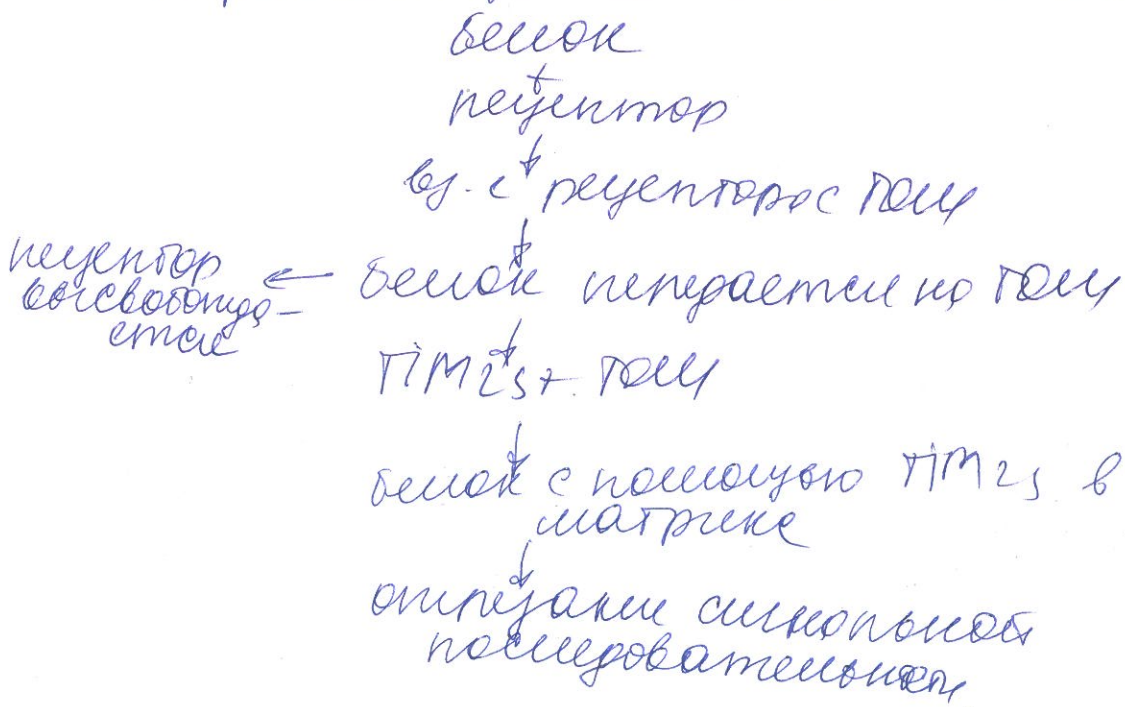 белок
рецептор
вз. с рецептора с TOM
рецептор
высвобожда-
ется
белок передается на TOM
TIM23 + TOM
белок с помощью TIM23 в
матрикс
отрезание сигнальной
последовательности